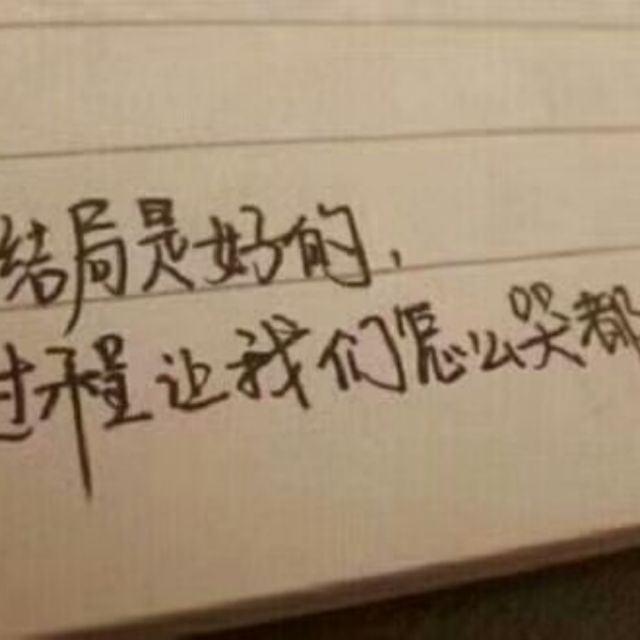 结局是好的,
过程让我们怎么哭都